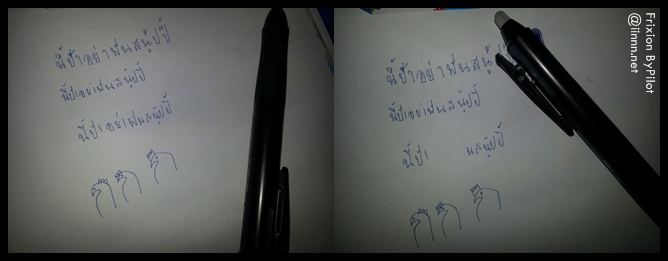 นี้ป้าอย่าพ่นสนู้ปปี้
นี้ป้าอย่าพ่นสนู้ปปี้
นี้ป้าอย่าพ่นสนู้ปปี้
ก ก ก
นี้ป้าอย่าพ่นสนู้ปปี้
นี้ป้าอย่าพ่นสนู้ปปี้
นี้ป้า นสนู้ปปี้
ก ก ก
Frixion ByPilot
@iinnn.net